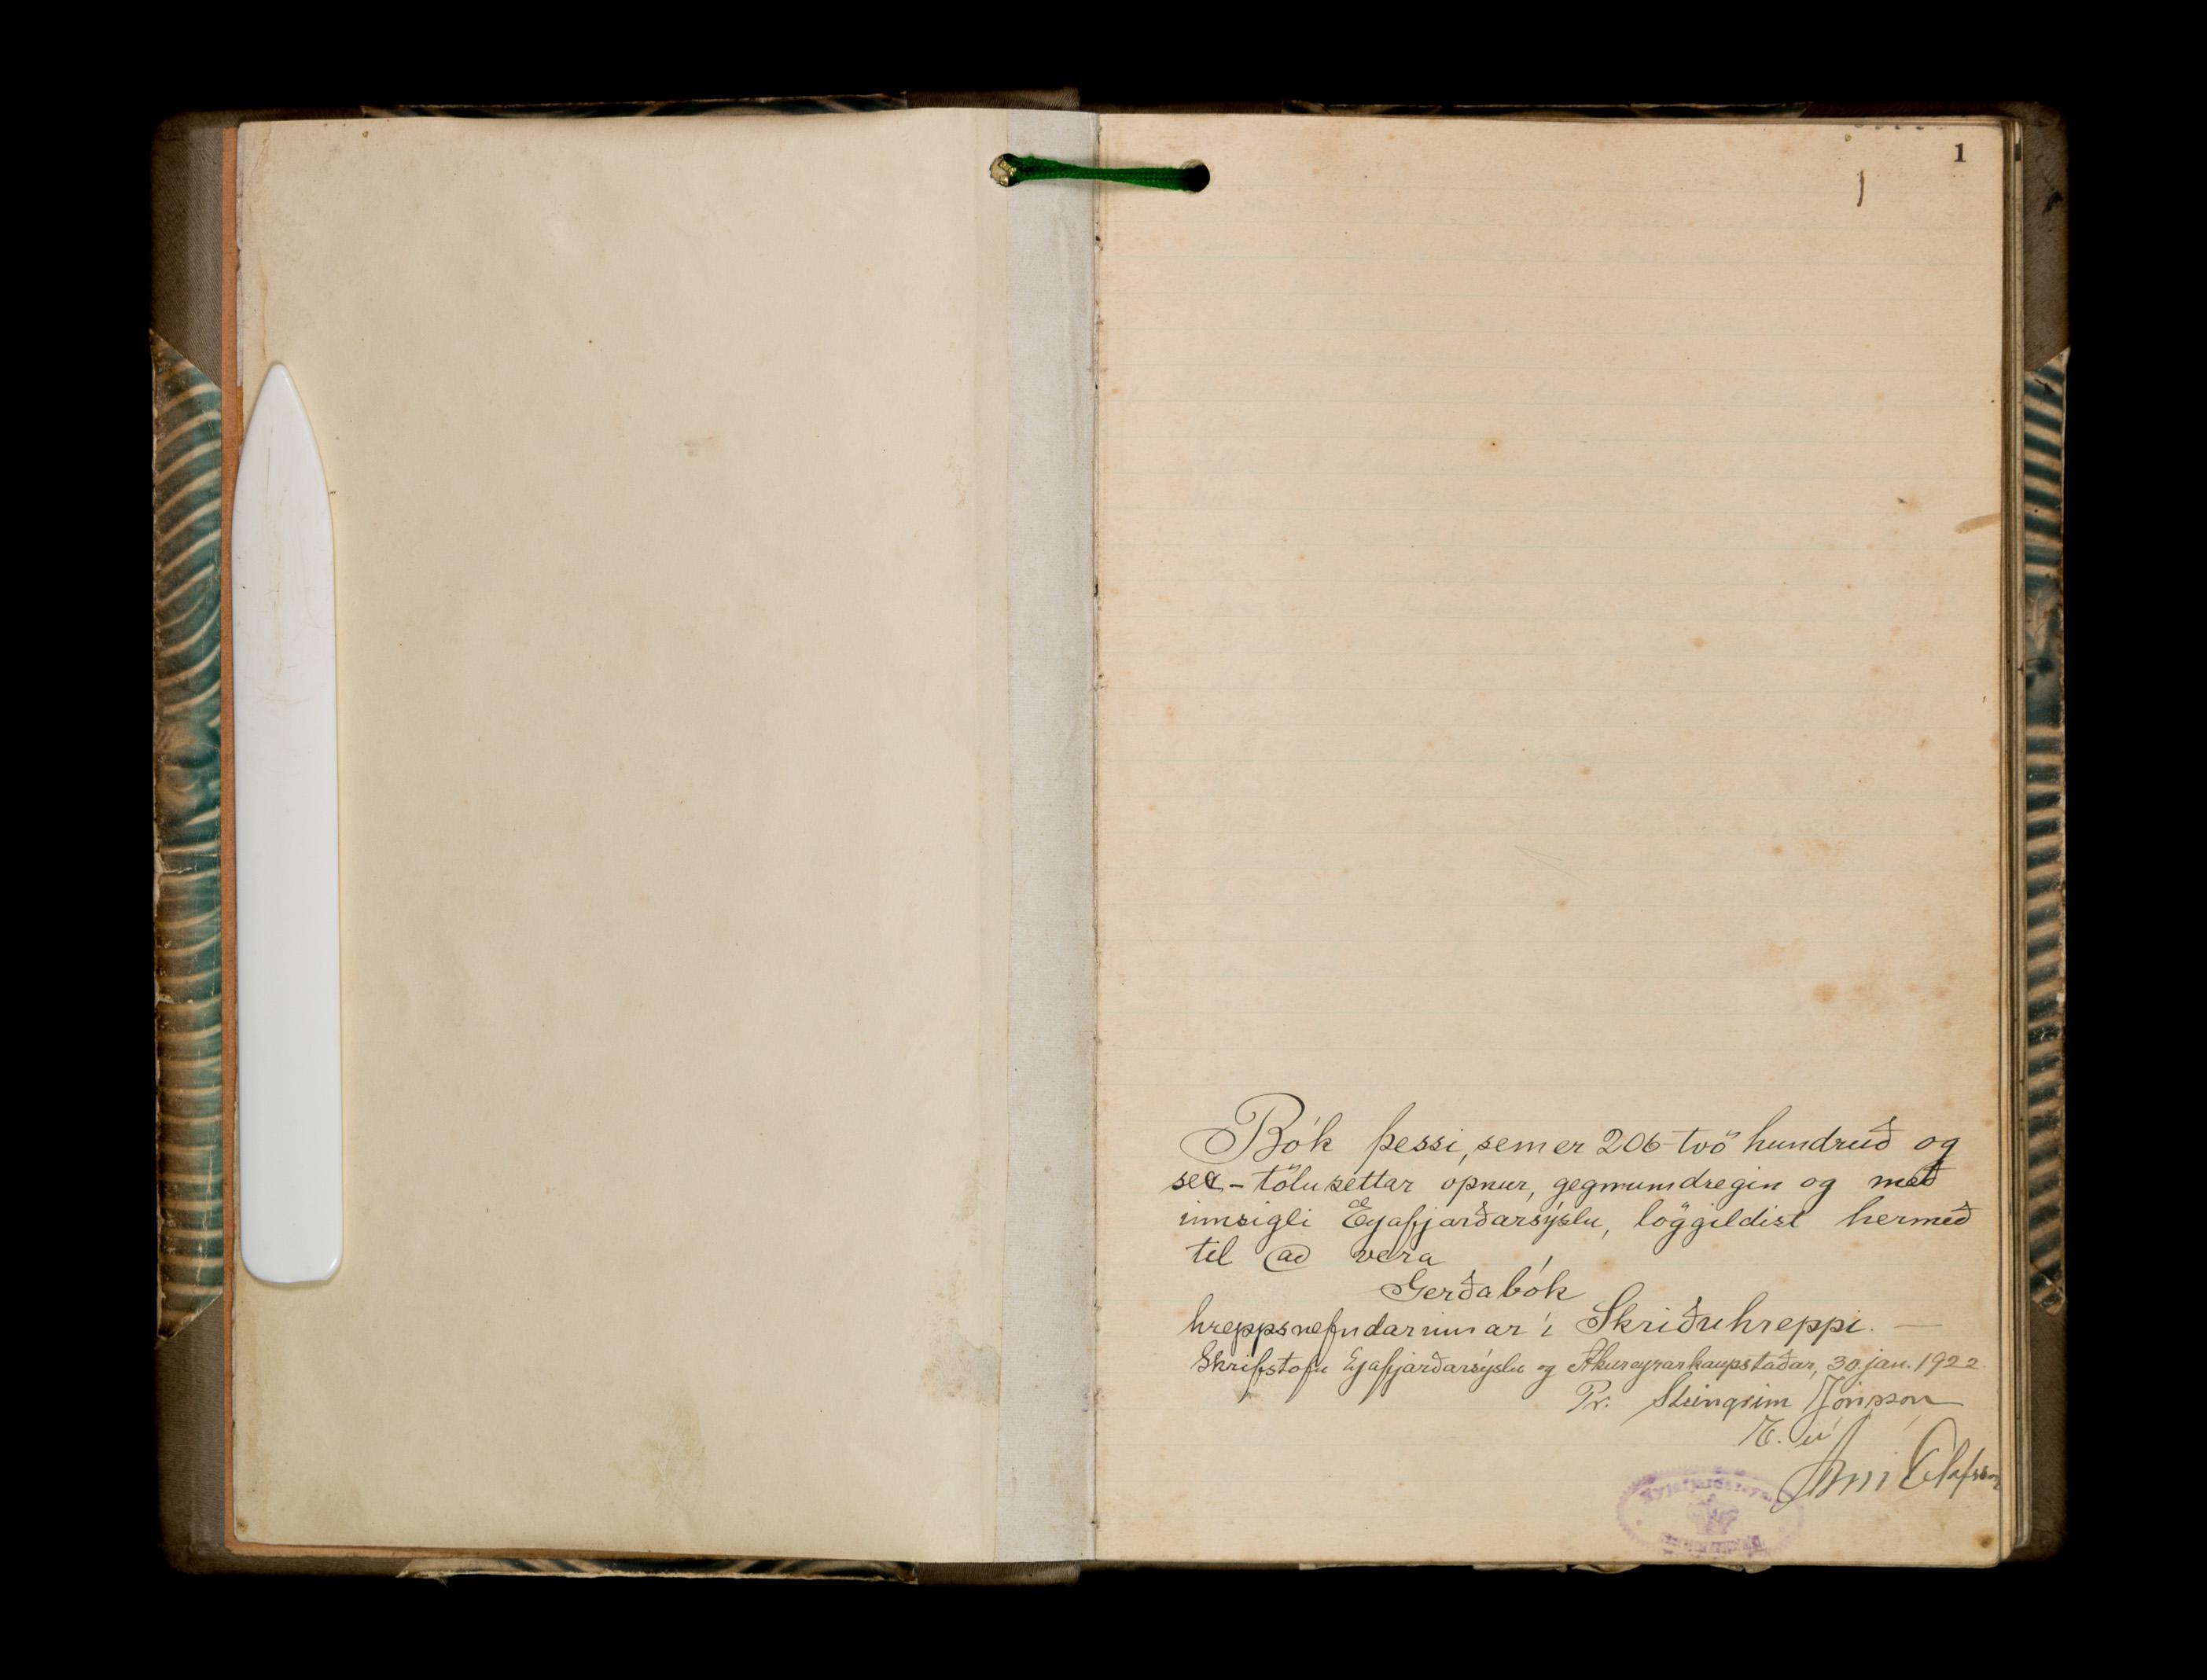 1
1
Bók þessi, sem er 206 tvö hundruð og
sex - tölusettar opnur, gegnumdregin og með
innsigli Eyafjarðarsýslu, löggildist hermeð
til að vera
Gerðabók
hreppsnefndarinnar í Skriðuhreppi. —
Skrifstofu Eyafjarðarsýslu og Akureyrarkaupstaðar, 30. jan. 1922.
Pr. Steingrím Jónsson
Árni Ólafsson